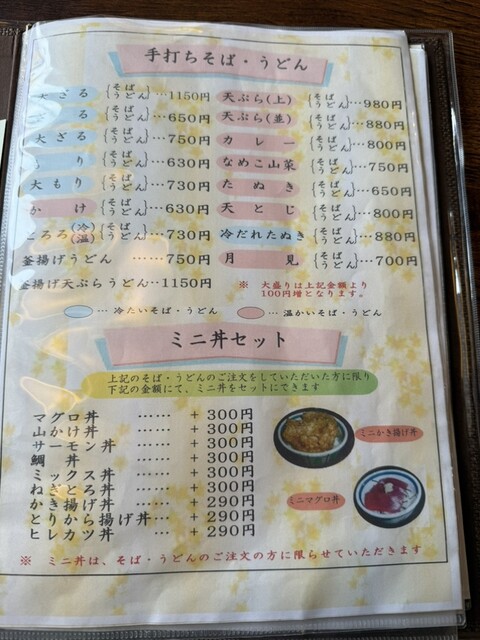 手打ちそば・うどん
大ざる {そば うどん}…1150円
る {そば うどん}…650円
大ざる {そば うどん}…750円
り {そば うどん}…630円
大もり {そば うどん}…730円
かけ {そば うどん}…630円
とろろ(冷)(温) {そば うどん}…730円
釜揚げうどん ……750円
釜揚げ天ぷらうどん…1150円
天ぷら(上) {そば うどん}…980円
天ぷら(並) {そば うどん}…880円
カレー {そば うどん}…800円
なめこ山菜 {そば うどん}…750円
たぬき {そば うどん}…650円
天とじ {そば うどん}…800円
冷だれたぬき {そば うどん}…880円
月見 {そば うどん}…700円
※ 大盛りは上記金額より
100円増となります。
…冷たいそば・うどん
…温かいそば・うどん
ミニ丼セット
上記のそば・うどんのご注文をしていただいた方に限り
下記の金額にて、ミニ丼をセットにできます
マグロ丼 …… + 300円
山かけ丼 …… + 300円
サーモン丼 …… + 300円
鯛丼 …… + 300円
ミックス丼 …… + 300円
ねぎとろ丼 …… + 300円
かき揚げ丼 …… + 290円
とりから揚げ丼… + 290円
ヒレカツ丼 …… + 290円
ミニかき揚げ丼
ミニマグロ丼
※ ミニ丼は、そば・うどんのご注文の方に限らせていただきます